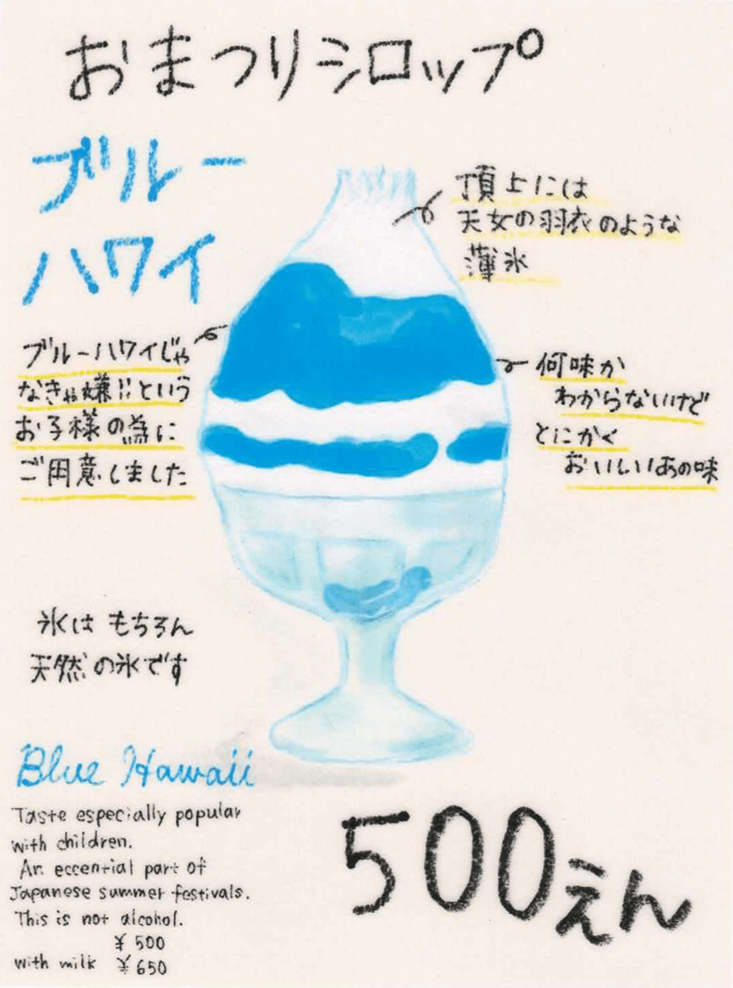 おまつりシロップ
ブルー
ハワイ
頂上には
天女の羽衣のような
薄氷
ブルーハワイじゃ
なきゃ嫌!!という
お子様の為に
ご用意しました
何味か
わからないけど
とにかく
おいしいあの味
氷は もちろん
天然の氷です
Blue Hawaii
Taste especially popular
with children.
An eccential part of
Japanese summer festivals.
This is not alcohol.
¥ 500
with milk ¥ 650
500えん